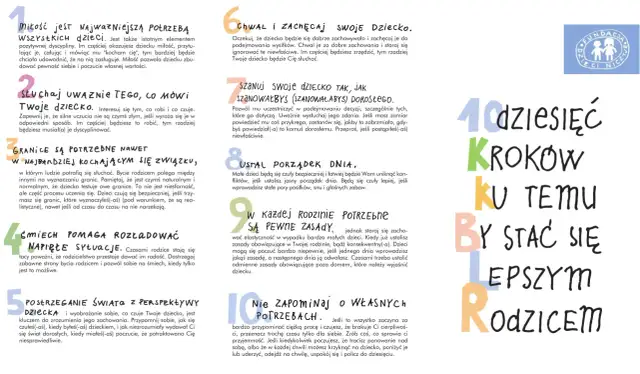 1 Miłość jest najważniejszą potrzebą
wszystkich dzieci. Jest także istotnym elementem
pozytywnej dyscypliny. Im częściej okazujesz dziecku miłość, przytu-
lając je, całując i mówiąc mu "kocham cię", tym bardziej będzie
chciało udowodnić, że na nią zasługuje. Miłość pozwala dziecku zbu-
dować pewność siebie i poczucie własnej wartości.
2 Słuchaj uważnie tego, co mówi
Twoje dziecko. Interesuj się tym, co robi i co czuje.
Zapewnij je, że silne uczucia nie są czymś złym, jeśli wyraża się je w
odpowiedni sposób. Im częściej będziesz to robić, tym rzadziej
będziesz musiał(a) je dyscyplinować.
3 Granice są potrzebne nawet
w najbardziej kochającym się związku,
w którym ludzie potrafią się słuchać. Bycie rodzicem polega między
innymi na wyznaczaniu granic. Pamiętaj, że jest czymś naturalnym i
normalnym, że dziecko testuje owe granice. To nie jest niesforność,
ale część procesu uczenia się. Dzieci czują się bezpieczniej, jeśli trzy-
masz się granic, które wyznaczyłeś(-aś) (pod warunkiem, że są rea-
listyczne), nawet jeśli od czasu do czasu na nie narzekają.
4 Śmiech pomaga rozładować
napięte sytuacje. Czasami rodzice stają się
tacy poważni, że rodzicielstwo przestaje dawać im radość. Dostrzegaj
zabawne strony bycia rodzicem i pozwól sobie na śmiech, kiedy tylko
jest to możliwe.
5 Postrzeganie świata z perspektywy
dziecka i wyobrażanie sobie, co czuje Twoje dziecko, jest
kluczem do zrozumienia jego zachowania. Przypomnij sobie, jak się
czułeś(-aś), kiedy byłeś(-aś) dzieckiem, i jak niezrozumiały wydawał Ci
się świat dorosłych, kiedy miałeś(-aś) poczucie, że potraktowano Cię
niesprawiedliwie.
6. Chwal i zachęcaj swoje dziecko.
Oczekuj, że dziecko będzie się dobrze zachowywało i zachęcaj je do
podejmowania wysiłków. Chwal je za dobre zachowania i staraj się
ignorować te niewłaściwe. Im częściej będziesz zrzędzić, tym rzadziej
Twoje dziecko będzie Cię słuchać.
7 Szanuj swoje dziecko tak, jak
szanowałbyś (szanowałabyś) dorosłego.
Pozwól mu uczestniczyć w podejmowaniu decyzji, szczególnie tych,
które go dotyczą. Uważnie wysłuchaj jego zdania. Jeśli masz zamiar
powiedzieć mu coś przykrego, zastanów się, jakby to zabrzmiało, gdy-
byś powiedział(-a) to komuś dorosłemu. Przeproś, jeśli postąpiłeś(-aś)
niewłaściwie.
8 Ustal porządek dnia.
Małe dzieci będą się czuły bezpieczniej i łatwiej będzie Wam uniknąć kon-
fliktów, jeśli ustalisz jasny porządek dnia. Będą się czuły lepiej, jeśli
wprowadzisz stałe pory posiłków, snu i głośnych zabaw.
9 W każdej rodzinie potrzebne
są pewne zasady, jednak staraj się zacho-
wać elastyczność w wypadku bardzo małych dzieci. Kiedy już ustalisz
zasady obowiązujące w Twojej rodzinie, bądź konsekwentny(-a). Dzieci
mogą się poczuć bardzo niepewnie, jeśli jednego dnia wprowadzisz
jakąś zasadę, a następnego dnia ją odwołasz. Czasami trzeba ustalić
odmienne zasady obowiązujące poza domem, które należy wyjaśnić
dziecku.
10 Nie zapominaj o własnych
potrzebach. Jeśli to wszystko zaczyna za
bardzo przypominać ciężką pracę i czujesz, że brakuje Ci cierpliwoś-
ci, przeznacz trochę czasu tylko dla siebie. Zrób coś, co sprawia ci
przyjemność. Jeśli kiedykolwiek poczujesz, że tracisz panowanie nad
sobą, albo że w każdej chwili możesz krzyknąć na dziecko, poniżyć je
lub uderzyć, odejdź na chwilę, uspokój się i policz do dziesięciu.
FUNDACJA
DZIECI NICZYJE
10 dziesięć
kroków
ku temu
by stać się
lepszym
rodzicem